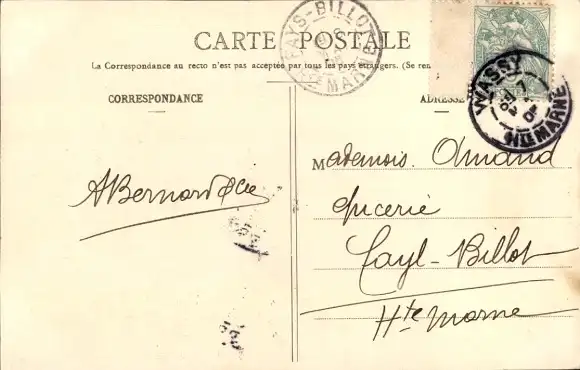 CARTE POSTALE
La Correspondance au recto n'est pas acceptée par tous les pays étrangers. (Se ren
CORRESPONDANCE
ADRESSE
FAYS-BILLOT
HTE MARNE
WASSY
HTE MARNE
Mademois. Amand
épicerie
Fayl-Billot
Hte Marne
ABernard &cie